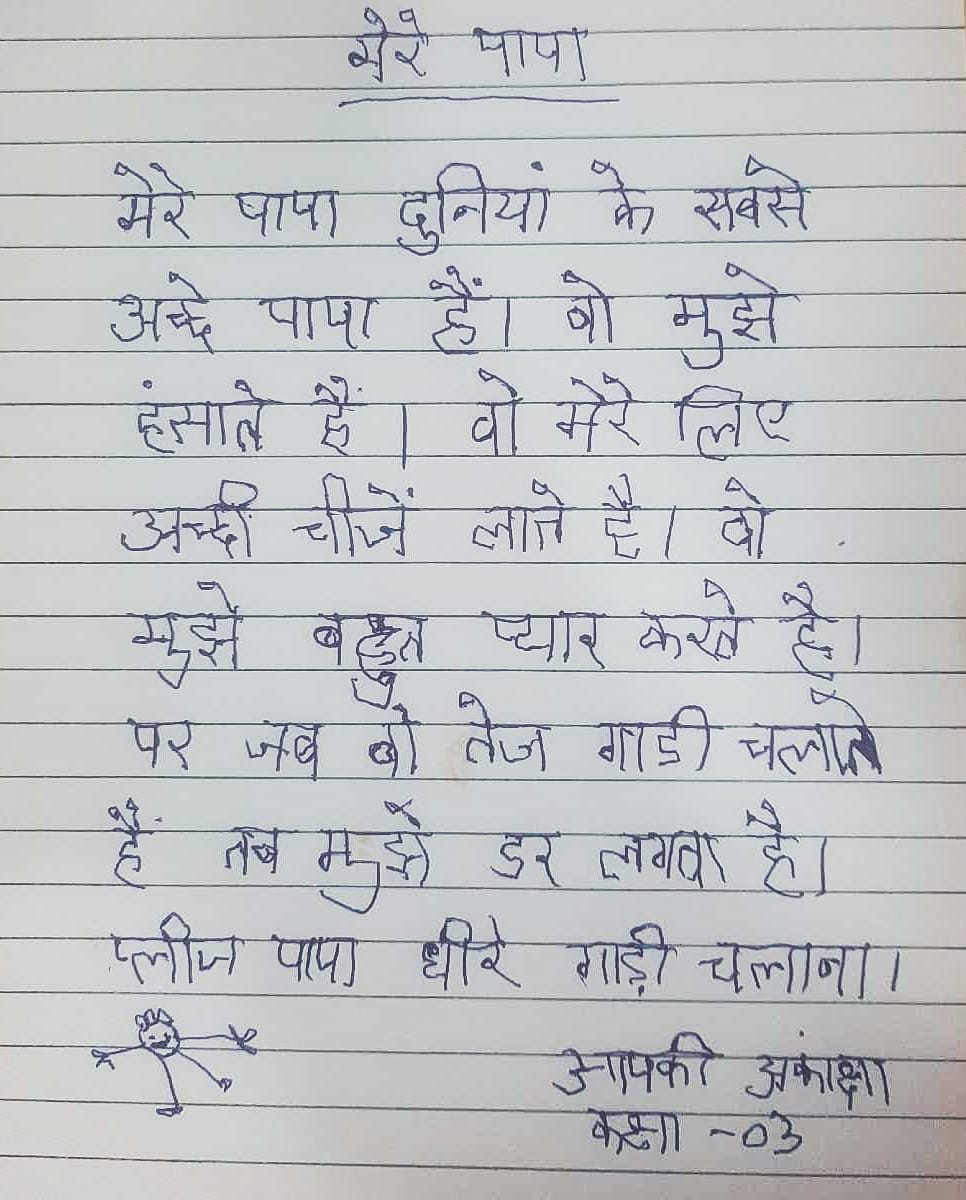 मेरे पापा
मेरे पापा दुनियां के सबसे
अच्छे पापा हैं। वो मुझे
हंसाते हैं। वो मेरे लिए
अच्छी चीजें लाते है। वो
मुझे बहुत प्यार करते है।
पर जब वो तेज गाडी चलाते
हैं तब मुझे डर लगता है।
प्लीज पापा धीरे गाड़ी चलाना।
आपकी अकांक्षा
कक्षा -03